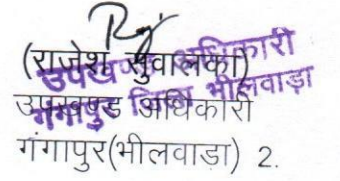 (राजेश सुवालका)
उपखण्ड अधिकारी
गंगापुर(भीलवाड़ा) 2.
उपखण्ड अधिकारी
गंगापुर जिला भीलवाड़ा